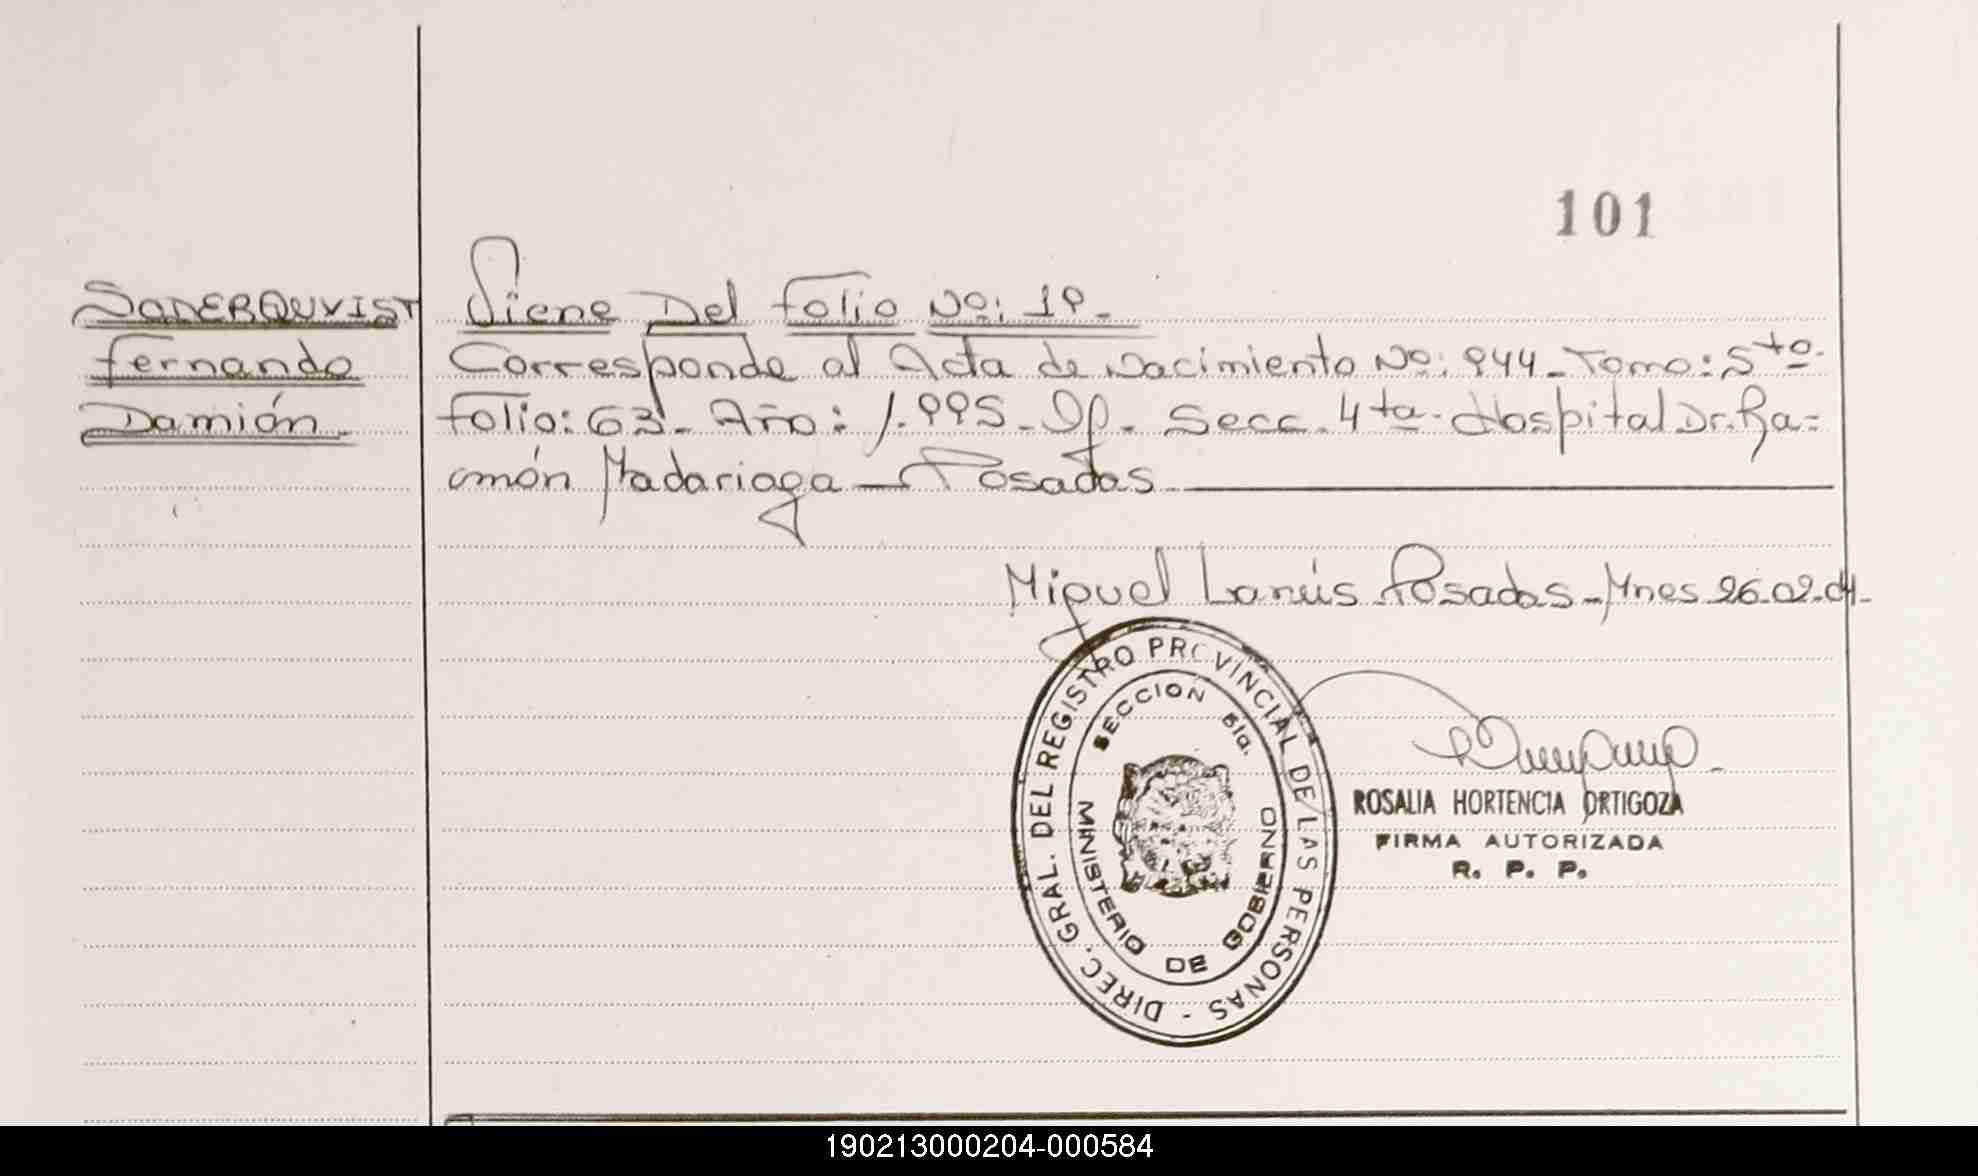 101
SODERQUVIST
Fernando
Damián.
Viene Del Folio Nº: 19.
Corresponde al Acta de Nacimiento Nº: 944 - Tomo: 5to.
Folio: 63 - Año: 1.995 - Dp. Secc. 4ta. Hospital Dr. Ra=
món Madariaga - Posadas
Miguel Lanús Posadas - Mnes 26-02-04-
DIREC. GRAL. DEL REGISTRO PROVINCIAL DE LAS PERSONAS -
SECCION 5ta.
MINISTERIO DE GOBIERNO
ROSALIA HORTENCIA ORTIGOZA
FIRMA AUTORIZADA
R. P. P.
190213000204-000584